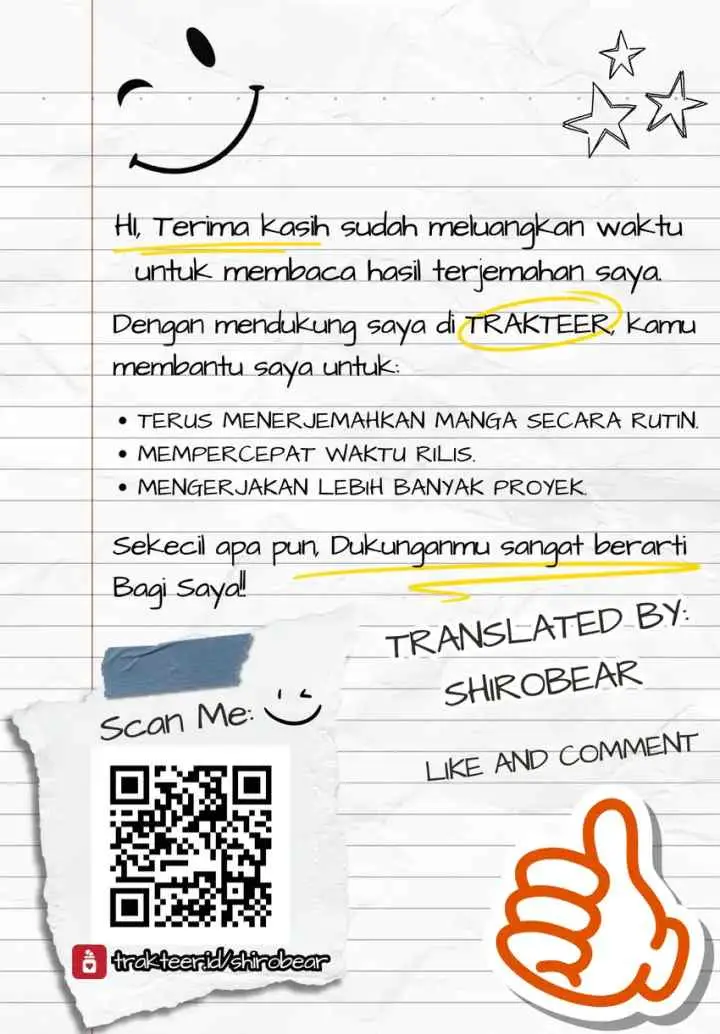 Hi, Terima kasih sudah meluangkan waktu
untuk membaca hasil terjemahan saya.
Dengan mendukung saya di TRAKTEER, kamu
membantu saya untuk:
• TERUS MENERJEMAHKAN MANGA SECARA RUTIN.
• MEMPERCEPAT WAKTU RILIS.
• MENGERJAKAN LEBIH BANYAK PROYEK.
Sekecil apa pun, Dukunganmu sangat berarti
Bagi Saya!!
TRANSLATED BY:
SHIROBEAR
LIKE AND COMMENT
Scan Me:
trakteer.id/shirobear